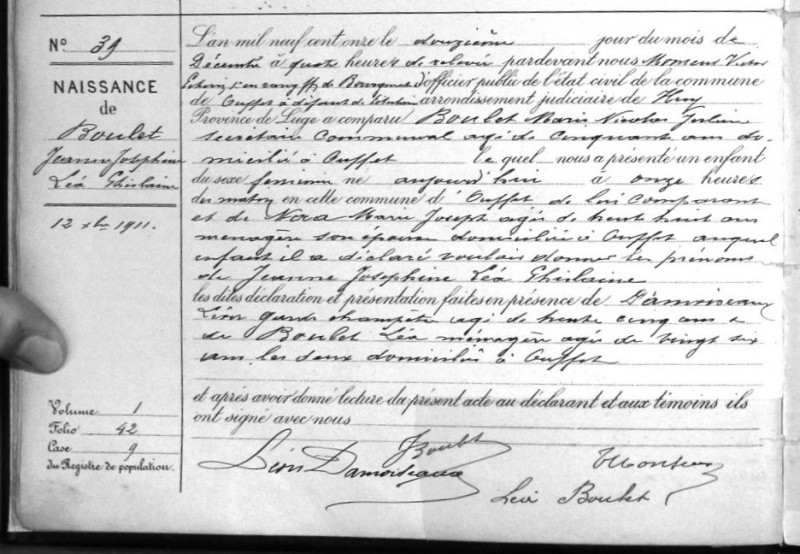 N° 39
NAISSANCE
de
Boulet
Jeanne Josephine
Léa Ghislaine
12 xbre 1911.
Volume 1
Folio 42
Case 9
du Registre de population.
L'an mil neuf cent onze le douzième jour du mois de
Décembre à quatre heures de relevée pardevant nous Monseur Victor
Echevin rang ff de Bourgmestre d'officier public de l'état civil de la commune
de Ouffet à défaut de titulaire arrondissement judiciaire de Huy
Province de Liège a comparu Boulet Marie Nicolas
secrétaire communal agé de cinquante ans do-
micilié à Ouffet lequel nous a présenté un enfant
du sexe feminin né aujourd'hui à onze heures
du matin en cette commune d'Ouffet de lui comparant
et de Nora Marie Joseph agée de trente huit ans
ménagère son épouse domiciliée à Ouffet auquel
enfant il a déclaré vouloir donner les prénoms
de Jeanne Josephine Léa Ghislaine
les dites déclaration et présentation faites en présence de Damoiseaux
Léon garde champêtre agé de trente cinq ans &
de Boulet Léa ménagère agée de vingt six
ans les deux domiciliés à Ouffet
et après avoir donné lecture du présent acte au déclarant et aux témoins ils
ont signé avec nous
Boulet
Léon Damoiseaux
VMonseur
Léa Boulet